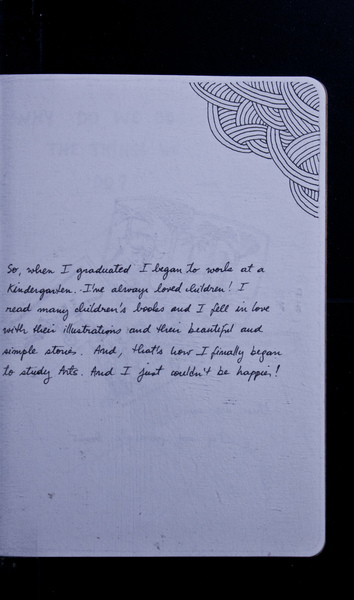 So, when I graduated I began to work at a
Kindergarten. I've always loved children! I
read many children's books and I fell in love
with their illustrations and their beautiful and
simple stories. And, that's how I finally began
to study Arts. And I just couldn't be happier!